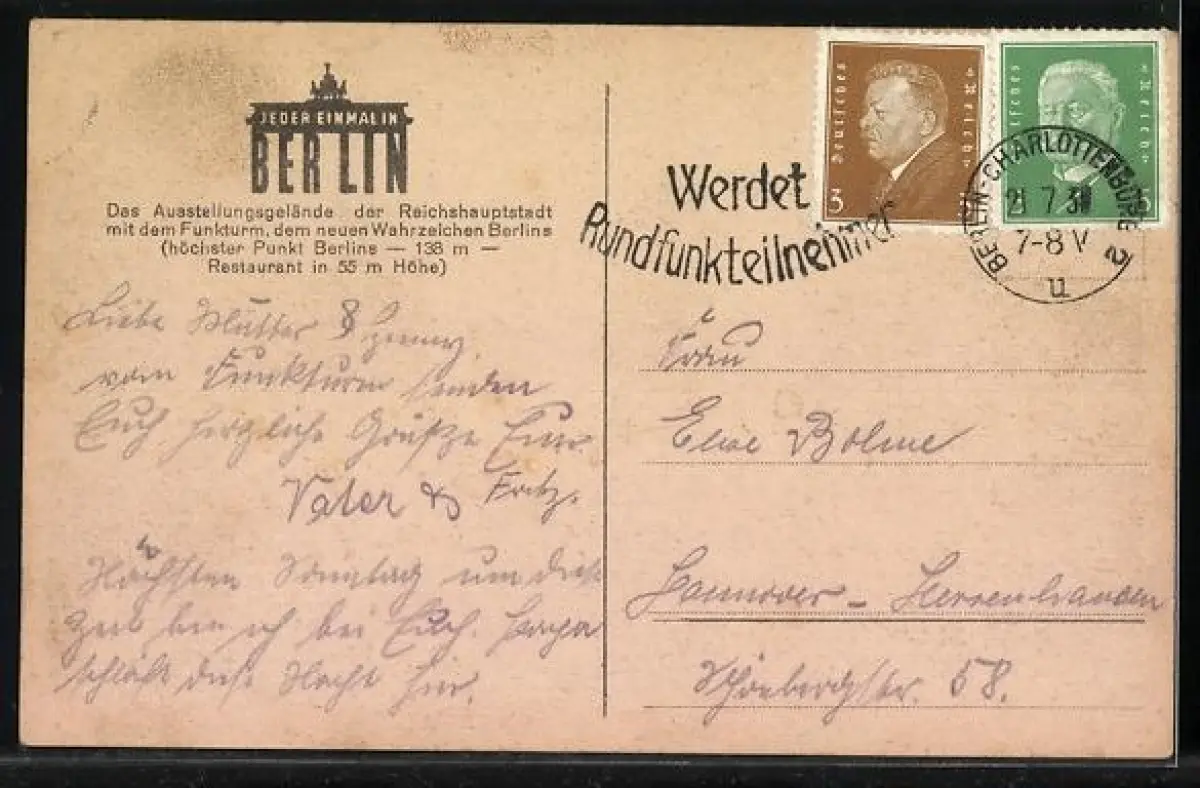 JEDER EINMAL IN
BERLIN
Das Ausstellungsgelände der Reichshauptstadt
mit dem Funkturm, dem neuen Wahrzeichen Berlins
(höchster Punkt Berlins — 138 m —
Restaurant in 55 m Höhe)
Liebe Mutter &
vom Funkturm senden
Euch herzliche Grüße Eure
Vater & Fritz.
Nächsten Sonntag um diese
Zeit bin ich bei Euch. Papa
schläft diese Nacht hier.
Werdet
Rundfunkteilnehmer
Deutsches Reich
3
Deutsches Reich
5
BERLIN-CHARLOTTENBURG 2
21 7 30
7-8 V
u
Frau
Bolme
Hannover - Herrenhausen
58.